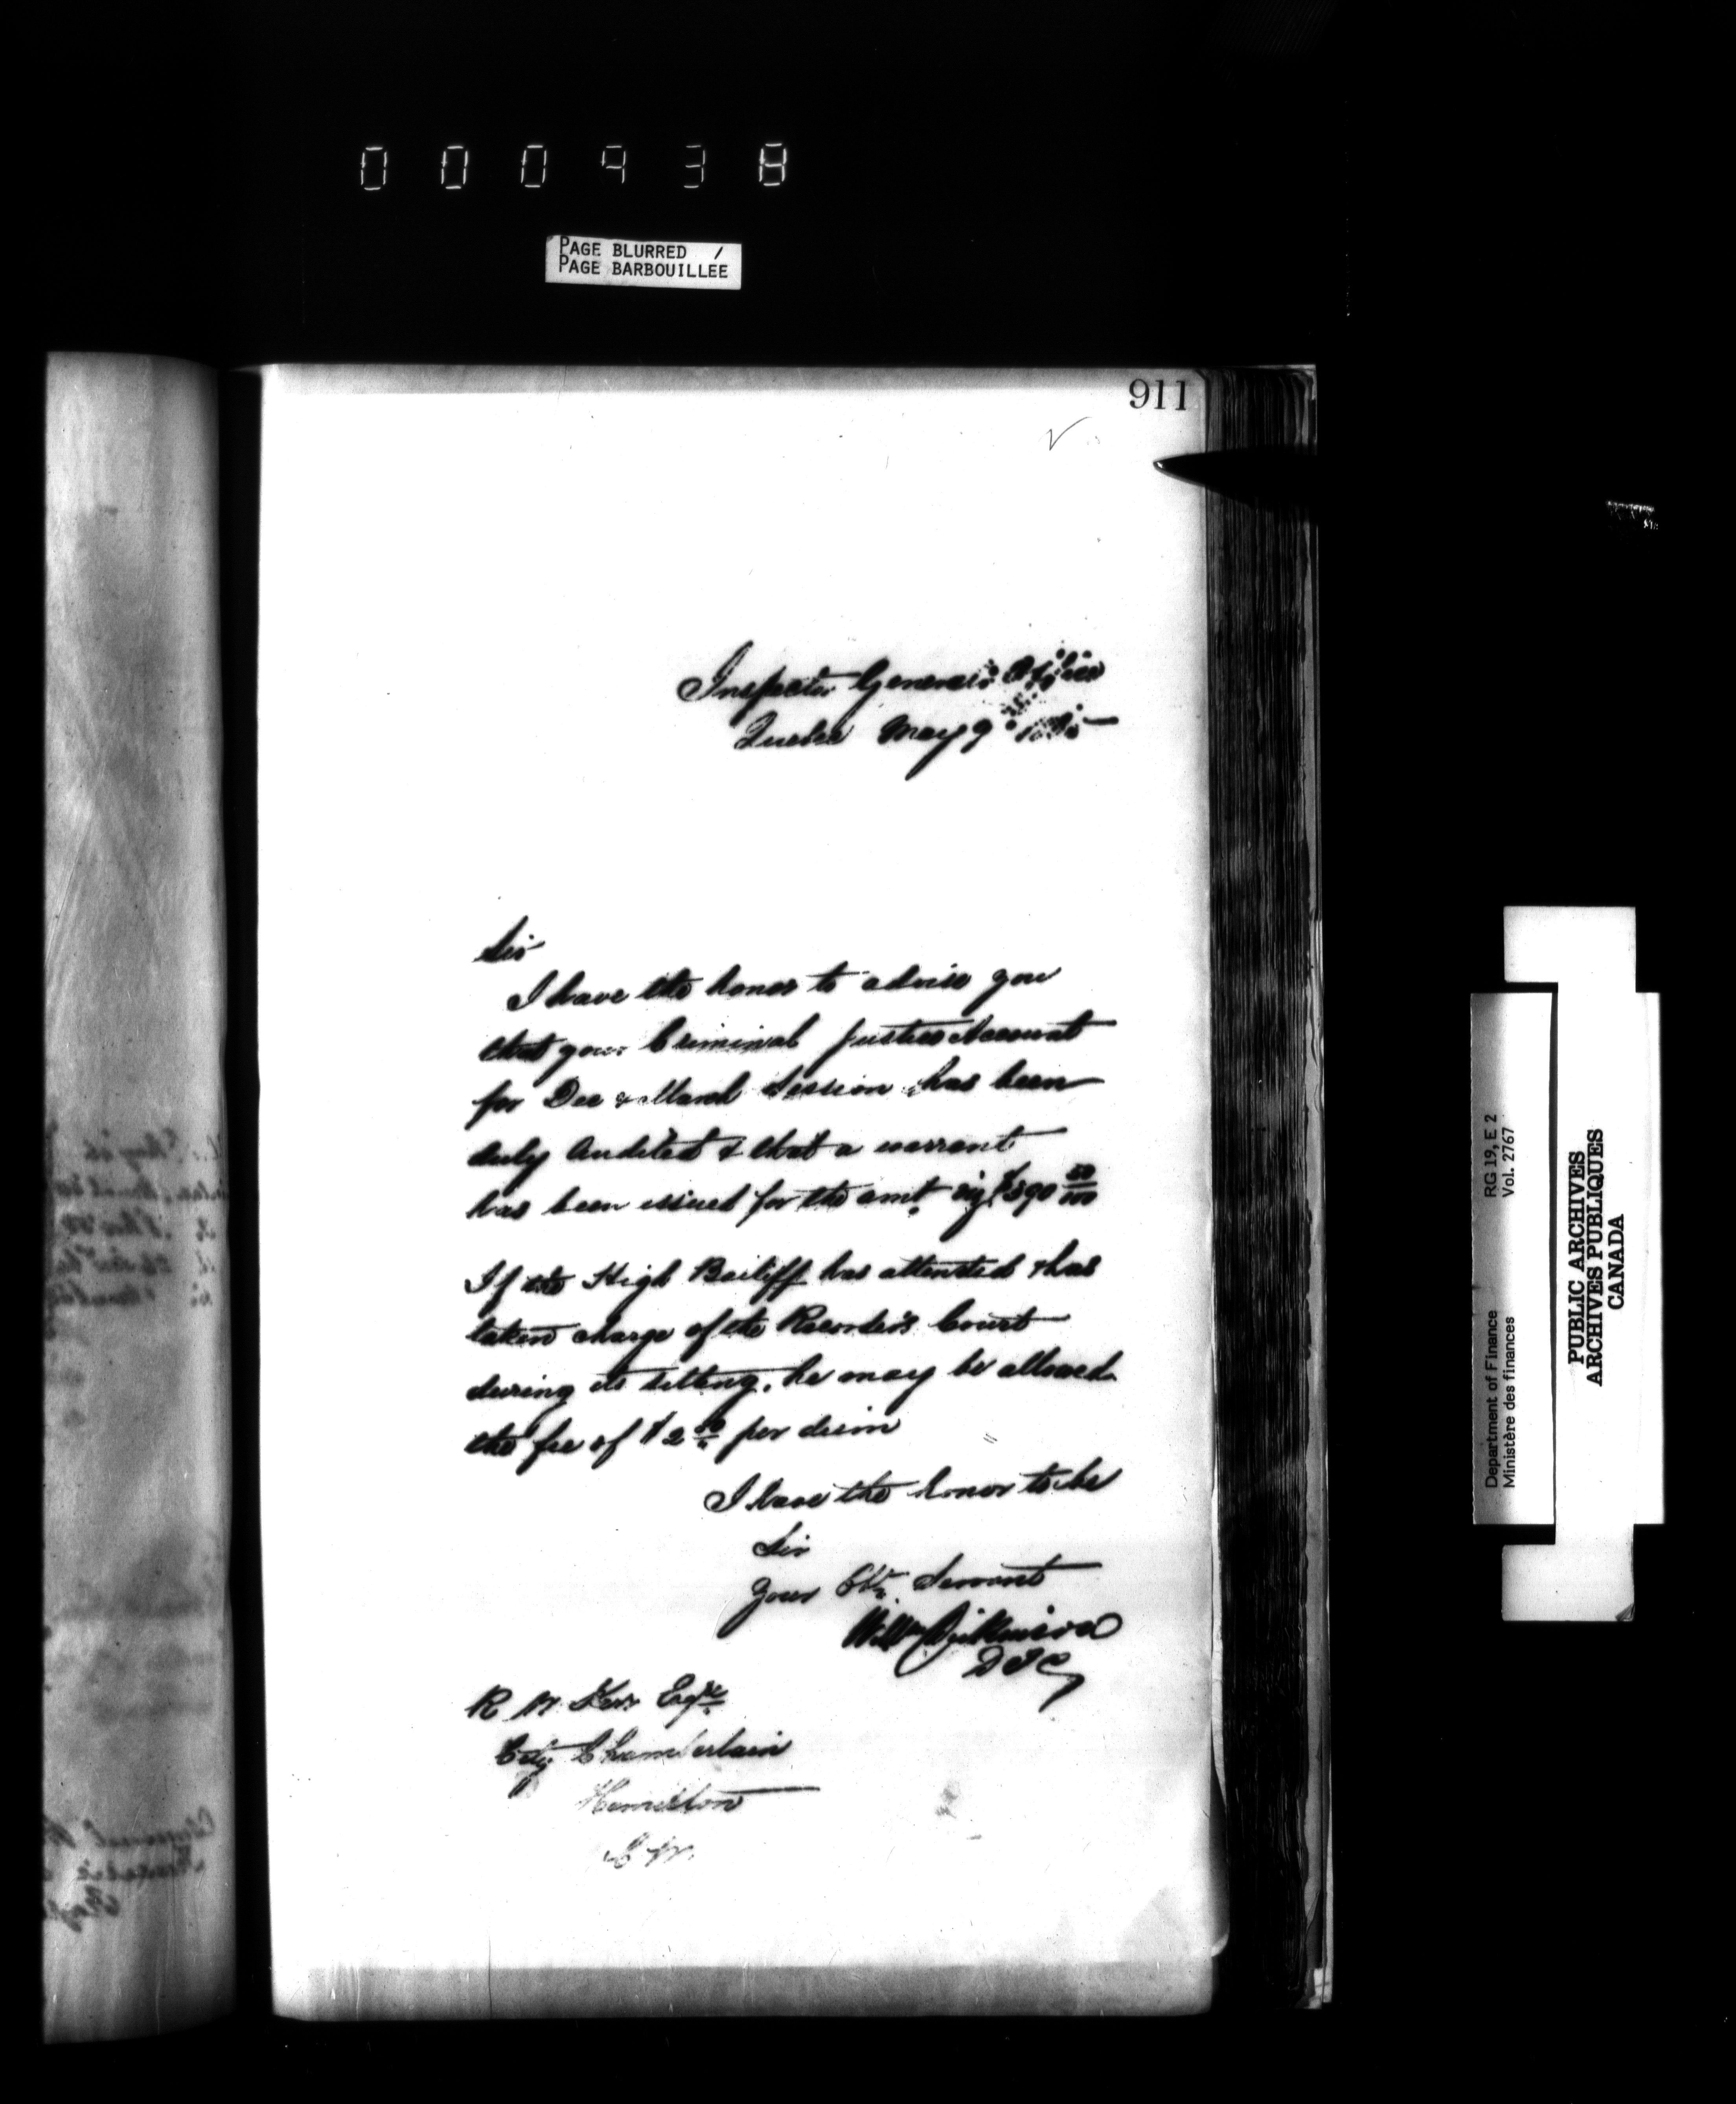 000938
PAGE BLURRED /
PAGE BARBOUILLEE
911
Inspector General's Office
Quebec May 9
Sir
I have the honor to advise you
that your Criminal Justice Account
for Dec & March Session has been
duly Audited & that a warrant
has been issued for the amt viz $390 50/100
If the High Bailiff has attended & has
taken charge of the Recorder's Court
during its sitting, he may be allowed
the fee of $2 per diem
I have the honor to be
Sir
Your Obt Servant
Willm Dickinson
D I G
R W Kerr Esqre
City Chamberlain
Hamilton
C W.
Department of Finance RG 19, E 2
Ministère des finances Vol. 2767
PUBLIC ARCHIVES
ARCHIVES PUBLIQUES
CANADA